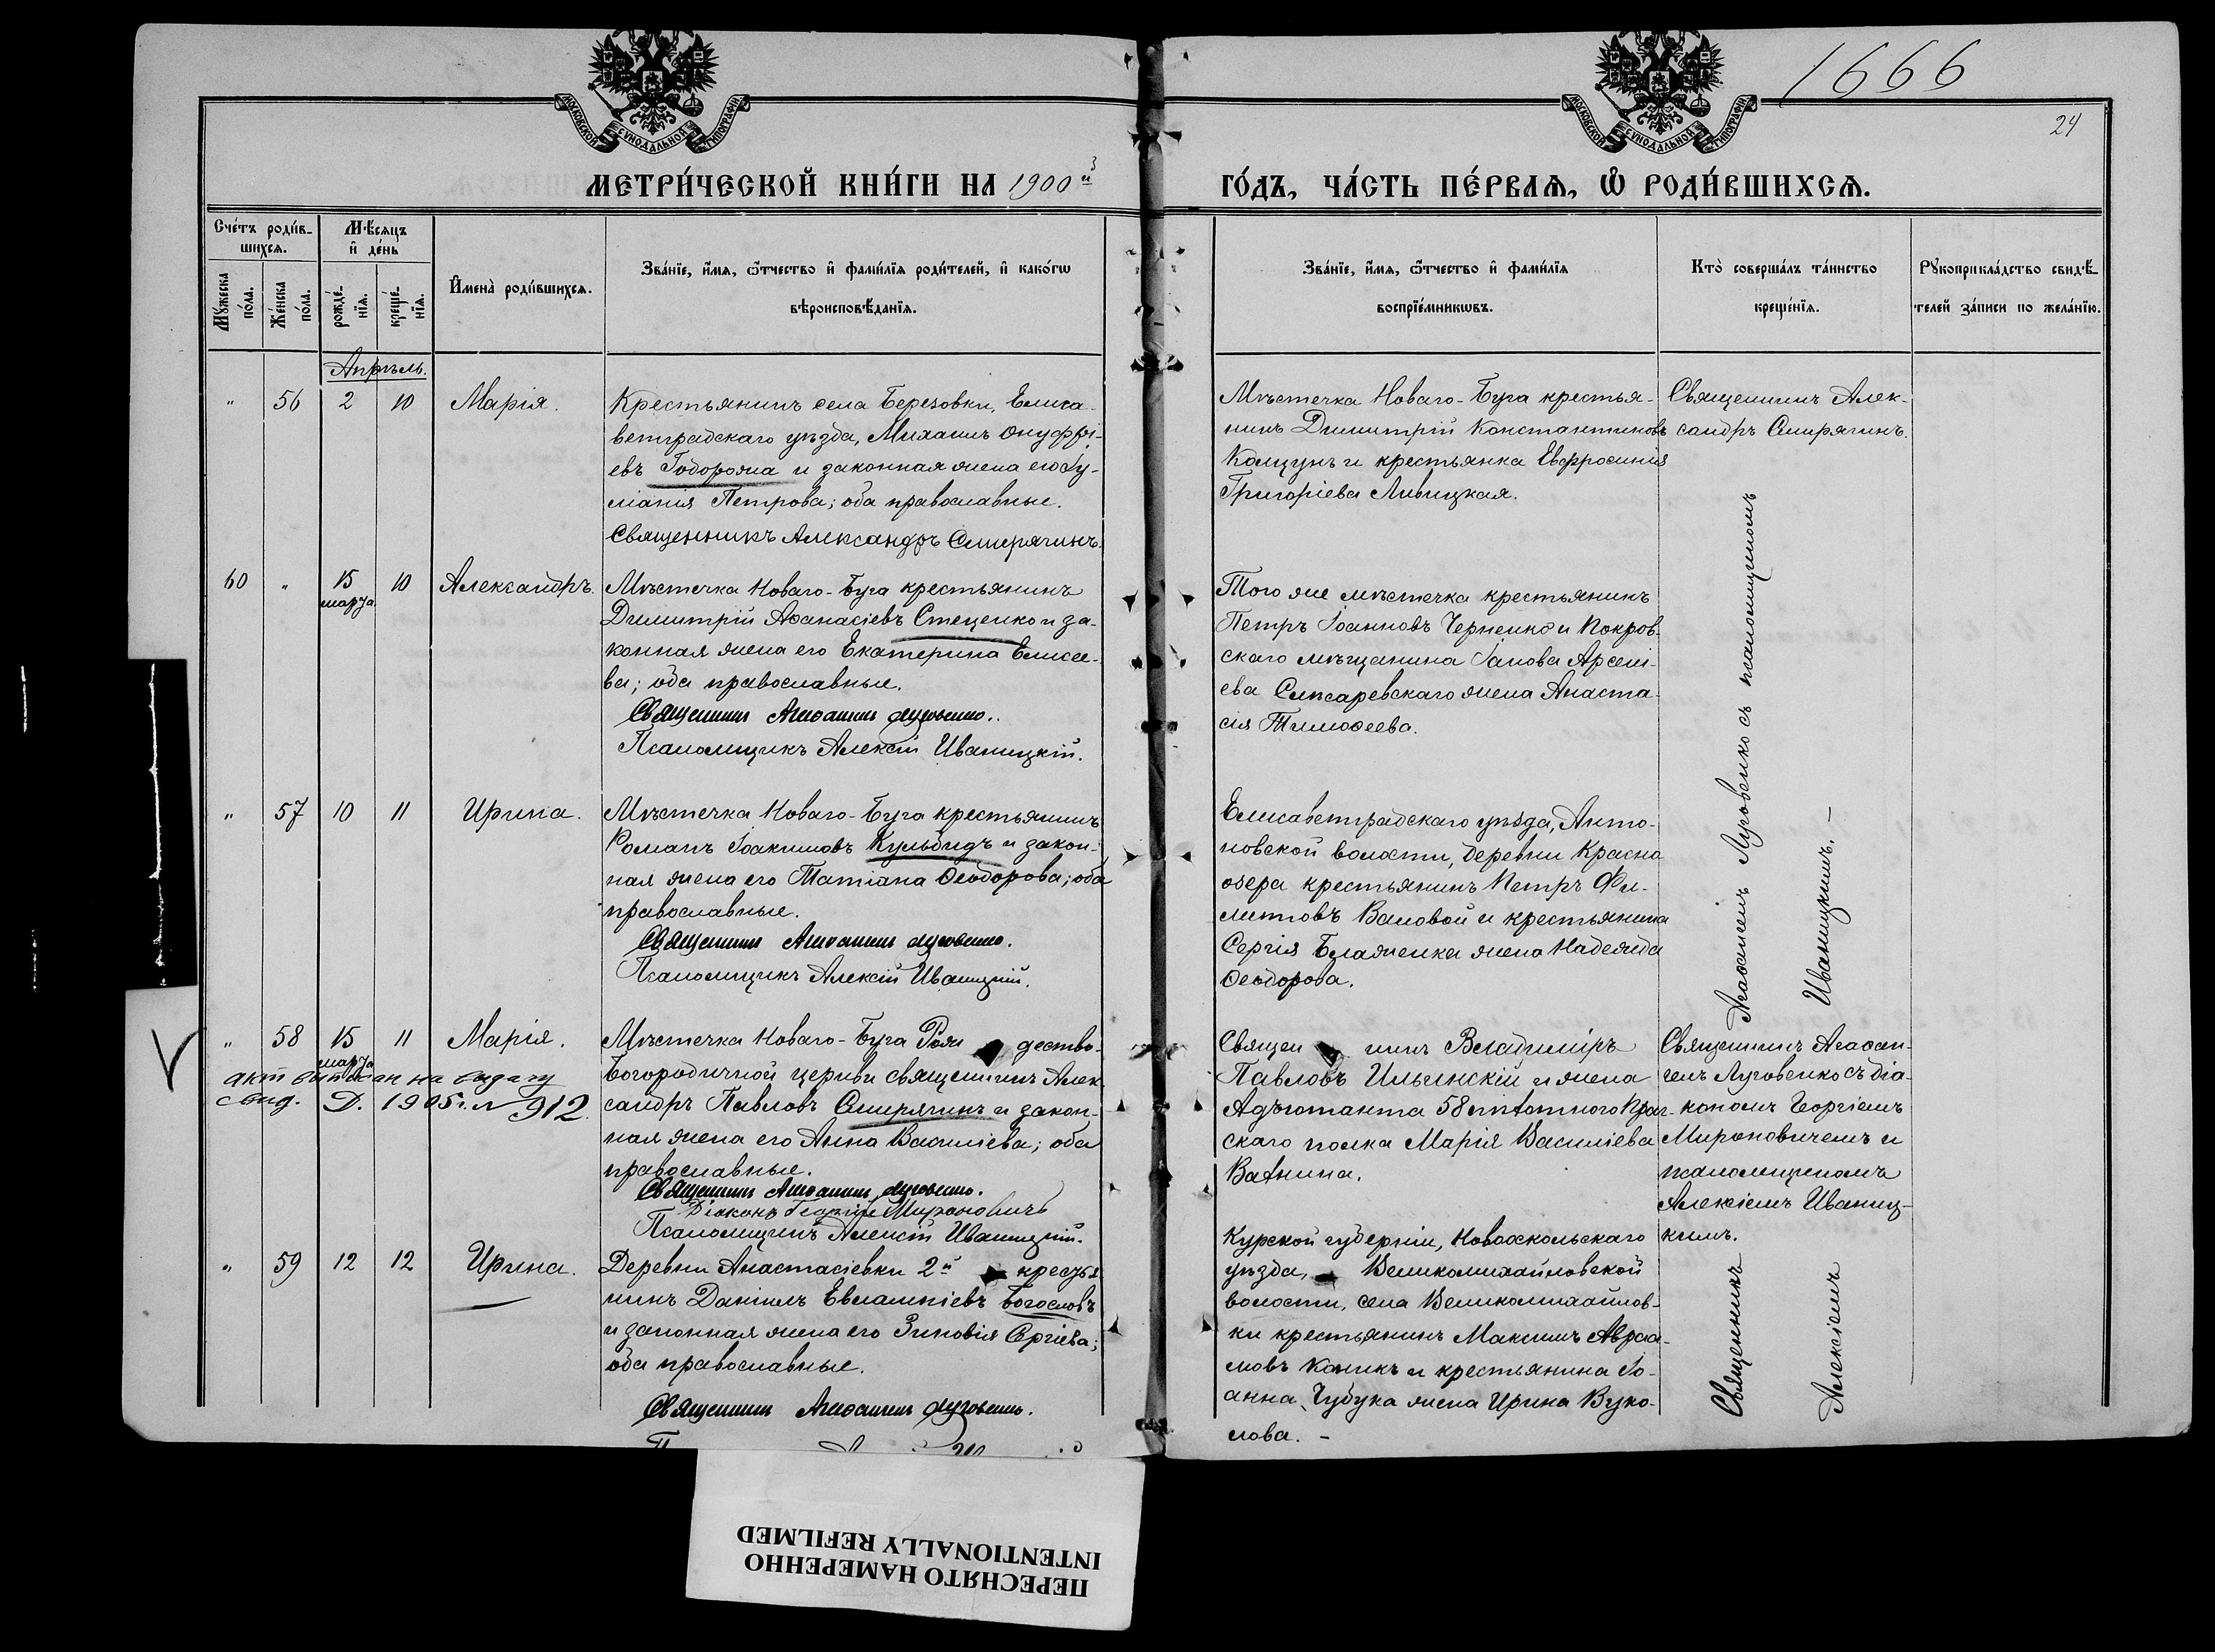 1666
24
МОСКОВСКОЙ СѴНОДАЛЬНОЙ ТИПОГРАФІИ
МОСКОВСКОЙ СѴНОДАЛЬНОЙ ТИПОГРАФІИ
МЕТРИ́ЧЕСКОЙ КНИ́ГИ НА 1900й
ГО́ДЪ, ЧА́СТЬ ПЕ́РВАѦ, Ѽ РОДИ́ВШИХСѦ.
Сче́тъ роди́в-
шихсѧ.
Мѣ́сѧцъ
и҆ де́нь
Мꙋ́жеска
по́ла.
Же́нска
по́ла.
рожде́-
нїѧ.
креще́-
нїѧ.
И҆мена̀ роди́вшихсѧ.
Зва́нїе, и҆́мѧ, ѻ҆́тчество и҆ фами́лїѧ роди́телей, и҆ како́гѡ
вѣроисповѣ́данїѧ.
Зва́нїе, и҆́мѧ, ѻ҆́тчество и҆ фами́лїѧ
воспрїе́мникѡвъ.
Кто̀ соверша́лъ та́инство
креще́нїѧ.
Рꙋкоприкла́дство свидѣ́-
телей за́писи по жела́нїю.
Апрѣль.
" 56 2 10 Марія.
Крестьянинъ села Березовки, Елиса-
ветградскаго уѣзда, Михаилъ Онуфрі-
евъ Годорожа и законная жена его Іу-
ліанія Петрова; оба православные.
Священникъ Александръ Смирягинъ.
Мѣстечка Новаго-Буга крестья-
нинъ Димитрій Константиновъ
Кощунъ и крестьянка Евфросинія
Григоріева Ливицкая.
Священникъ Алек-
сандръ Смирягинъ.
60 " 15 10 Александръ.
марта
Мѣстечка Новаго-Буга крестьянинъ
Димитрій Аѳанасіевъ Стеценко и за-
конная жена его Екатерина Елисее-
ва; оба православные.
Священникъ Агаѳангелъ Луговенко.
Псаломщикъ Алексій Иваницкій.
Того же мѣстечка крестьянинъ
Петръ Іоанновъ Черненко и Покров-
скаго мѣщанина Іакова Арсені-
ева Слюсаревскаго жена Анаста-
сія Тимоѳеева.
" 57 10 11 Ирина.
Мѣстечка Новаго-Буга крестьянинъ
Романъ Іоакимовъ Кульбидъ и закон-
ная жена его Татіана Ѳеодорова; оба
православные.
Священникъ Агаѳангелъ Луговенко.
Псаломщикъ Алексій Иваницкій.
Елисаветградскаго уѣзда, Анто-
новской волости, деревни Красно
озера крестьянинъ Петръ Фи-
литовъ Валовой и крестьянина
Сергія Блаженка жена Надежда
Ѳеодорова.
Священникъ Агаѳангелъ Луговенко съ псаломщикомъ
Алексіемъ Иваницкимъ. —
" 58 15 11 Марія.
марта
акт выписан на выдачу
свид. Д. 1905 г. № 912.
Мѣстечка Новаго-Буга Рож дество-
Богородичной церкви священникъ Алек-
сандръ Павловъ Смирягинъ и закон-
ная жена его Анна Василіева; оба
православные.
Священникъ Агаѳангелъ Луговенко.
Діаконъ Георгій Мироновичъ
Псаломщикъ Алексій Иваницкій.
Священ никъ Владиміръ
Павловъ Ильинскій и жена
Адъютанта 58 пѣхотного Праг-
скаго полка Марія Василіева
Вахнина.
Священникъ Агаѳан-
гелъ Луговенко съ діа-
кономъ Георгіемъ
Мироновичемъ и
псаломщикомъ
Алексіемъ Иваниц-
кимъ.
" 59 12 12 Ирина.
Деревни Анастасіевки 2й крестья
нинъ Даніилъ Евлампіевъ Богословъ
и законная жена его Зиновія Сергіева;
оба православные.
Священникъ Агаѳангелъ Луговенко.
Курской губерніи, Новооскольскаго
уѣзда, Великомихайловской
волости, села Великомихайлов-
ки крестьянинъ Максимъ Авраа-
мовъ Коникъ и крестьянина Іо-
анна Чубука жена Ирина Вуко-
лова. —
ПЕРЕСНЯТО НАМЕРЕННО
INTENTIONALLY REFILMED